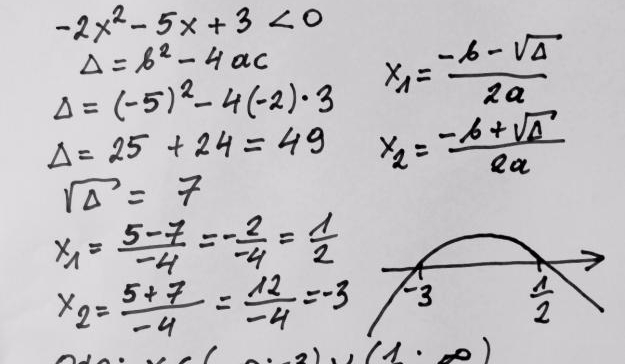 -2x² - 5x + 3 < 0
Δ = b² - 4ac
Δ = (-5)² - 4(-2)·3
Δ = 25 + 24 = 49
√Δ = 7
x₁ = (5-7)/-4 = -2/-4 = 1/2
x₂ = (5+7)/-4 = 12/-4 = -3
x₁ = (-b - √Δ)/2a
x₂ = (-b + √Δ)/2a
-3 1/2